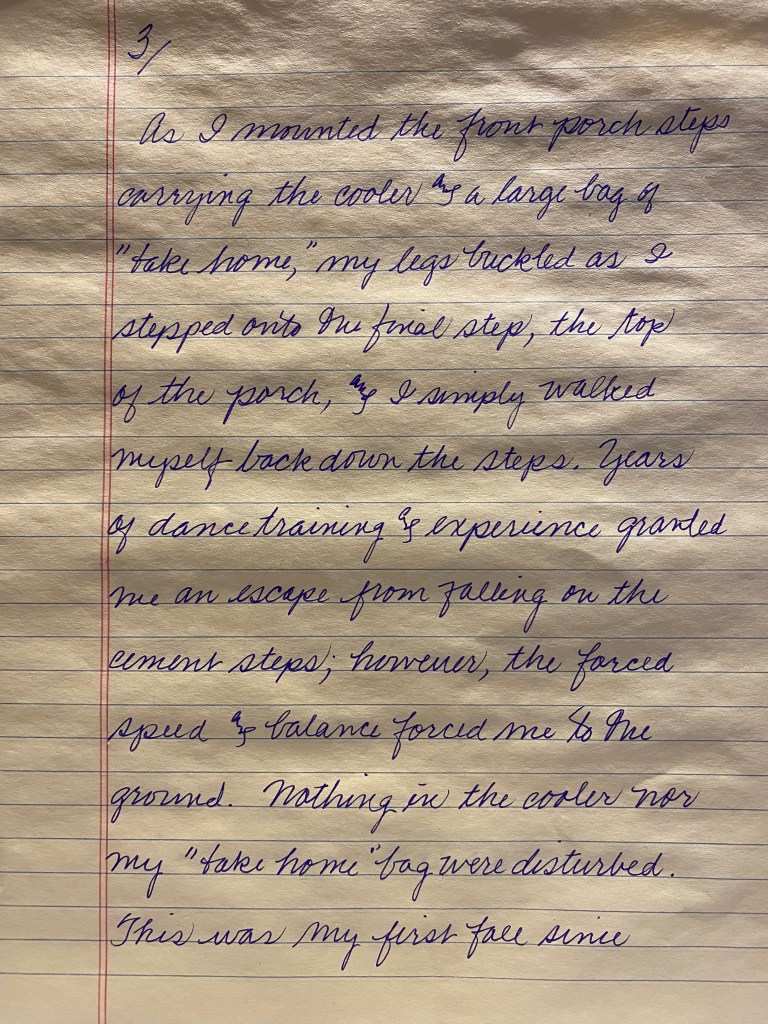 3/
As I mounted the front porch steps
carrying the cooler and a large bag of
"take home," my legs buckled as I
stepped onto the final step, the top
of the porch, and I simply walked
myself back down the steps. Years
of dance training and experience granted
me an escape from falling on the
cement steps; however, the forced
speed and balance forced me to the
ground. Nothing in the cooler nor
my "take home" bag were disturbed.
This was my first fall since